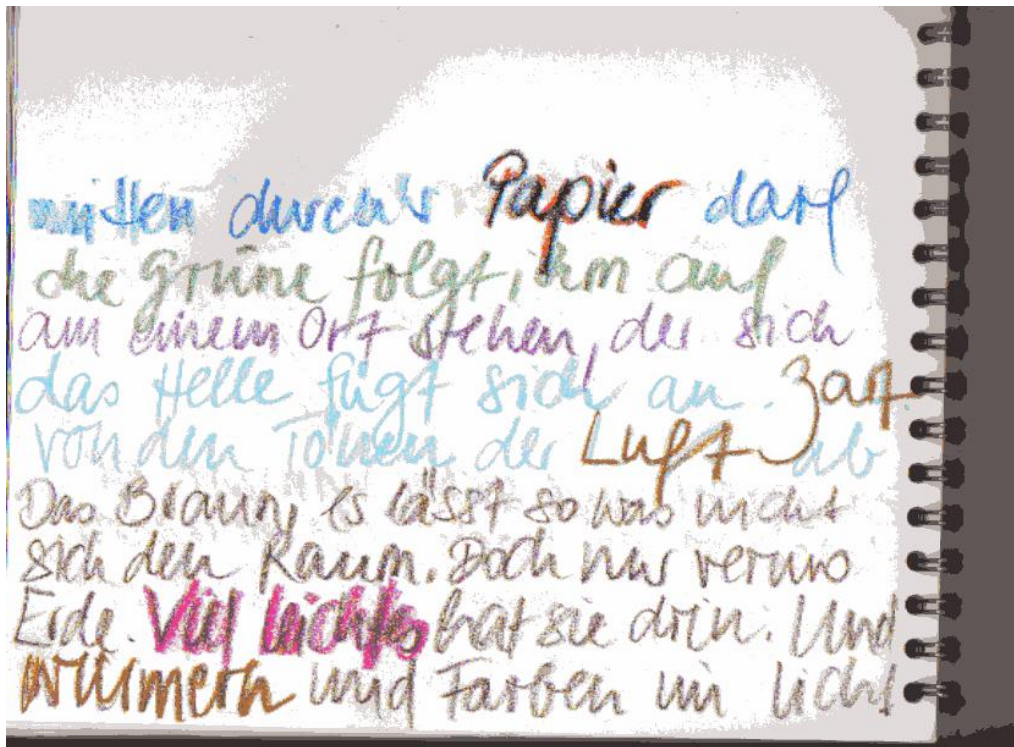 mitten durch's Papier darf
die Grüne folgt, ihm auf
an einem Ort stehen, der sich
das Helle fügt sich an. Zart
von den Tönen der Luft ab
Das Braun, es lässt so was nicht
sich den Raum. Doch nur
Erde. Viel leichtes hat sie drin. Und
und Farben im Licht